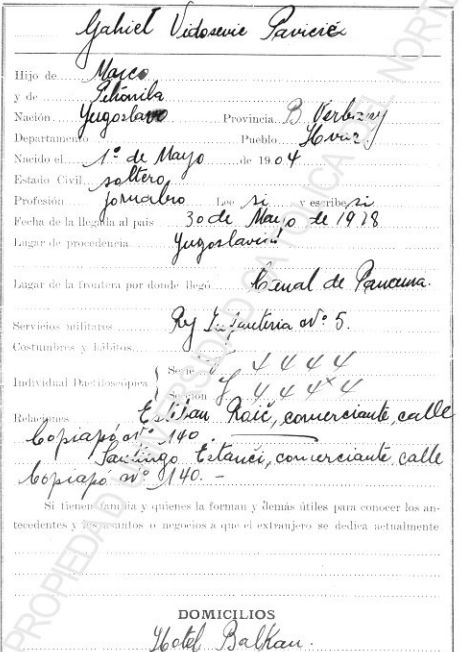 Gabriel Vidosevic Pavicić
Hijo de Marco
y de Petronila
Nación Yugoslavo Provincia B. Verbanj
Departamento Pueblo Hvar
Nacido el 1º de Mayo de 1904
Estado Civil soltero
Profesión jornalero Lee si y escribe si
Fecha de la llegada al pais 30 de Mayo de 1928
Lugar de procedencia Yugoslavia
Lugar de la frontera por donde llegó Canal de Panama.
Servicios militares Rej Infanteria Nº 5.
Costumbres y hábitos
Individual Dactiloscópica { Serie 4 4 4 4
Sección 4 4 4 x 4
Relaciones Esteban Roić, comerciante, calle
Copiapó Nº 140.
Santiago Estancé, comerciante, calle
Copiapó Nº 140. -
Si tienen familia y quienes la forman y demás útiles para conocer los an-
tecedentes y los asuntos o negocios a que el extranjero se dedica actualmente
DOMICILIOS
Hotel Balkan.
PROPIEDAD UNIVERSIDAD CATOLICA DEL NORTE